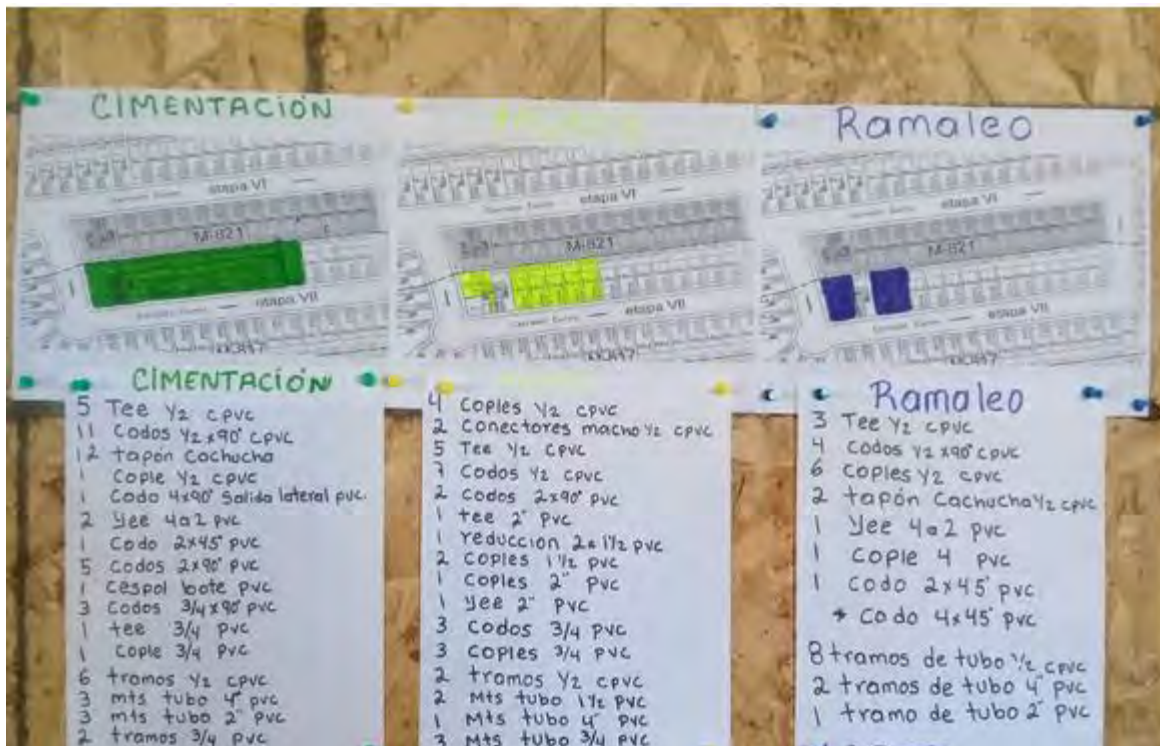 CIMENTACIÓN
Ramaleo
etapa VI
M-821
etapa VII
etapa VI
M-821
etapa VII
etapa VI
M-821
etapa VII
CIMENTACIÓN
5 Tee 1/2 cpvc
11 Codos 1/2 x 90° cpvc
12 tapón Cachucha
1 Cople 1/2 cpvc
1 Codo 4x90° Salida lateral pvc.
2 Yee 4 a 2 pvc
1 Codo 2x45° pvc
5 Codos 2x90° pvc
1 Cespol bote pvc
3 Codos 3/4 x 90° pvc
1 tee 3/4 pvc
1 Cople 3/4 pvc
6 tramos 1/2 cpvc
3 mts tubo 4" pvc
3 mts tubo 2" pvc
2 tramos 3/4 pvc
4 Coples 1/2 cpvc
2 Conectores macho 1/2 cpvc
5 Tee 1/2 cpvc
7 Codos 1/2 cpvc
2 Codos 2x90° pvc
1 tee 2" pvc
1 reduccion 2 a 1 1/2 pvc
2 Coples 1 1/2 pvc
1 Coples 2" pvc
1 Yee 2" pvc
3 Codos 3/4 pvc
3 Coples 3/4 pvc
2 tramos 1/2 cpvc
2 Mts tubo 1 1/2 pvc
1 Mts tubo 4" pvc
3 Mts tubo 3/4 pvc
Ramaleo
3 Tee 1/2 cpvc
4 Codos 1/2 x 90° cpvc
6 Coples 1/2 cpvc
2 tapón Cachucha 1/2 cpvc
1 Yee 4 a 2 pvc
1 Cople 4 pvc
1 Codo 2x45° pvc
* Codo 4x45° pvc
8 tramos de tubo 1/2 cpvc
2 tramos de tubo 4" pvc
1 tramo de tubo 2" pvc